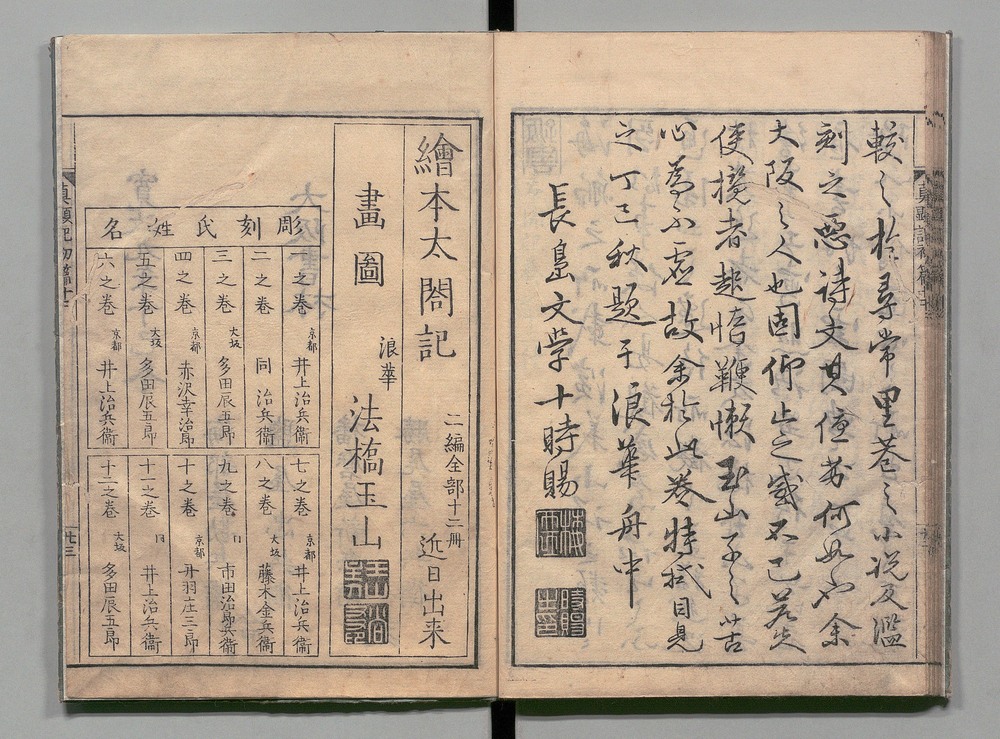 較之於尋常里巷之小説及濫
刻之惡詩文其優劣何如也余
大阪之人也固仰止之感不已若夫
使攬者起惰鞭懶玉山子之苦
心為不虚故余於此巻特拭目見
之丁巳秋題于浪華舟中
長島文学十時賜
繪本太閤記 二編全部十二冊 近日出来
畫圖 浪華 法橋玉山
彫刻氏姓名
一之巻 京都 井上治兵衞
二之巻 同 治兵衞
三之巻 大坂 多田辰五郎
四之巻 京都 赤沢幸治郎
五之巻 大坂 多田辰五郎
六之巻 京都 井上治兵衞
七之巻 京都 井上治兵衞
八之巻 大坂 藤木金兵衞
九之巻 同 市田治郎兵衞
十之巻 京都 丹羽庄三郎
十一之巻 同 井上治兵衞
十二之巻 大坂 多田辰五郎
真顕記初篇十二
廿三